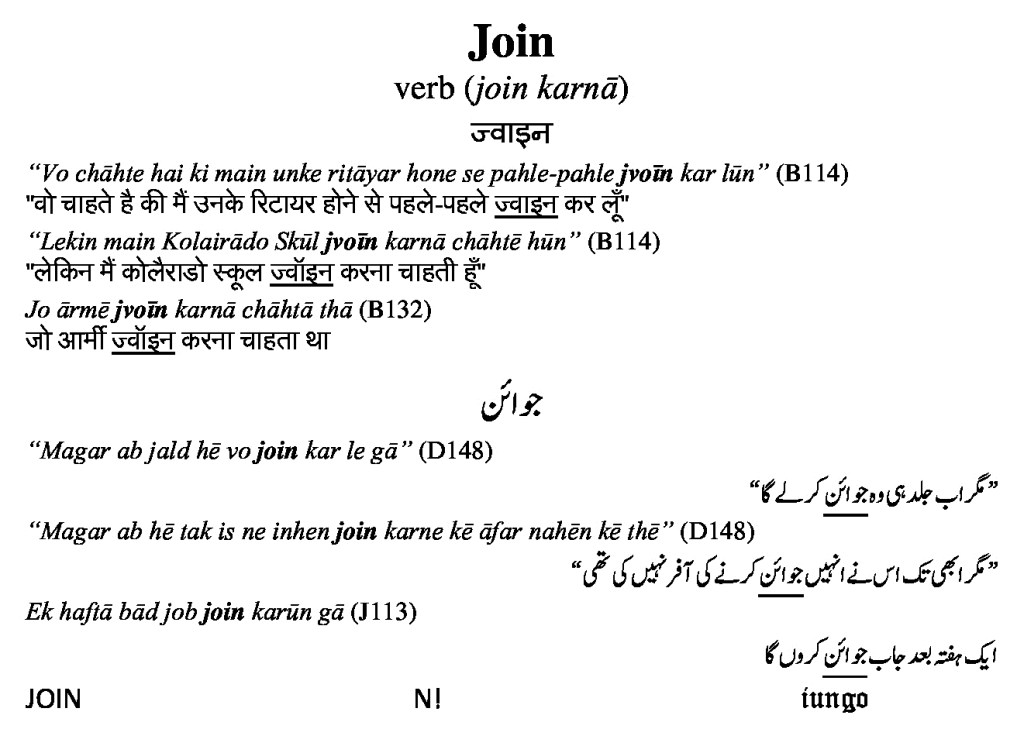 Join
verb (join karnā)
ज्वाइन
“Vo chāhte hai ki main unke ritāyar hone se pahle-pahle jvoīn kar lūn” (B114)
"वो चाहते है की मैं उनके रिटायर होने से पहले-पहले ज्वाइन कर लूँ"
“Lekin main Kolairādo Skūl jvoīn karnā chāhtē hūn” (B114)
"लेकिन मैं कोलैराडो स्कूल ज्वॉइन करना चाहती हूँ"
Jo ārmē jvoīn karnā chāhtā thā (B132)
जो आर्मी ज्वॉइन करना चाहता था
جوائن
“Magar ab jald hē vo join kar le gā” (D148)
”مگر اب جلد ہی وہ جوائن کر لے گا“
“Magar ab hē tak is ne inhen join karne kē āfar nahēn kē thē” (D148)
”مگر ابھی تک اس نے انہیں جوائن کرنے کی آفر نہیں کی تھی“
Ek haftā bād job join karūn gā (J113)
ایک ہفتہ بعد جاب جوائن کروں گا
JOIN N! iungo